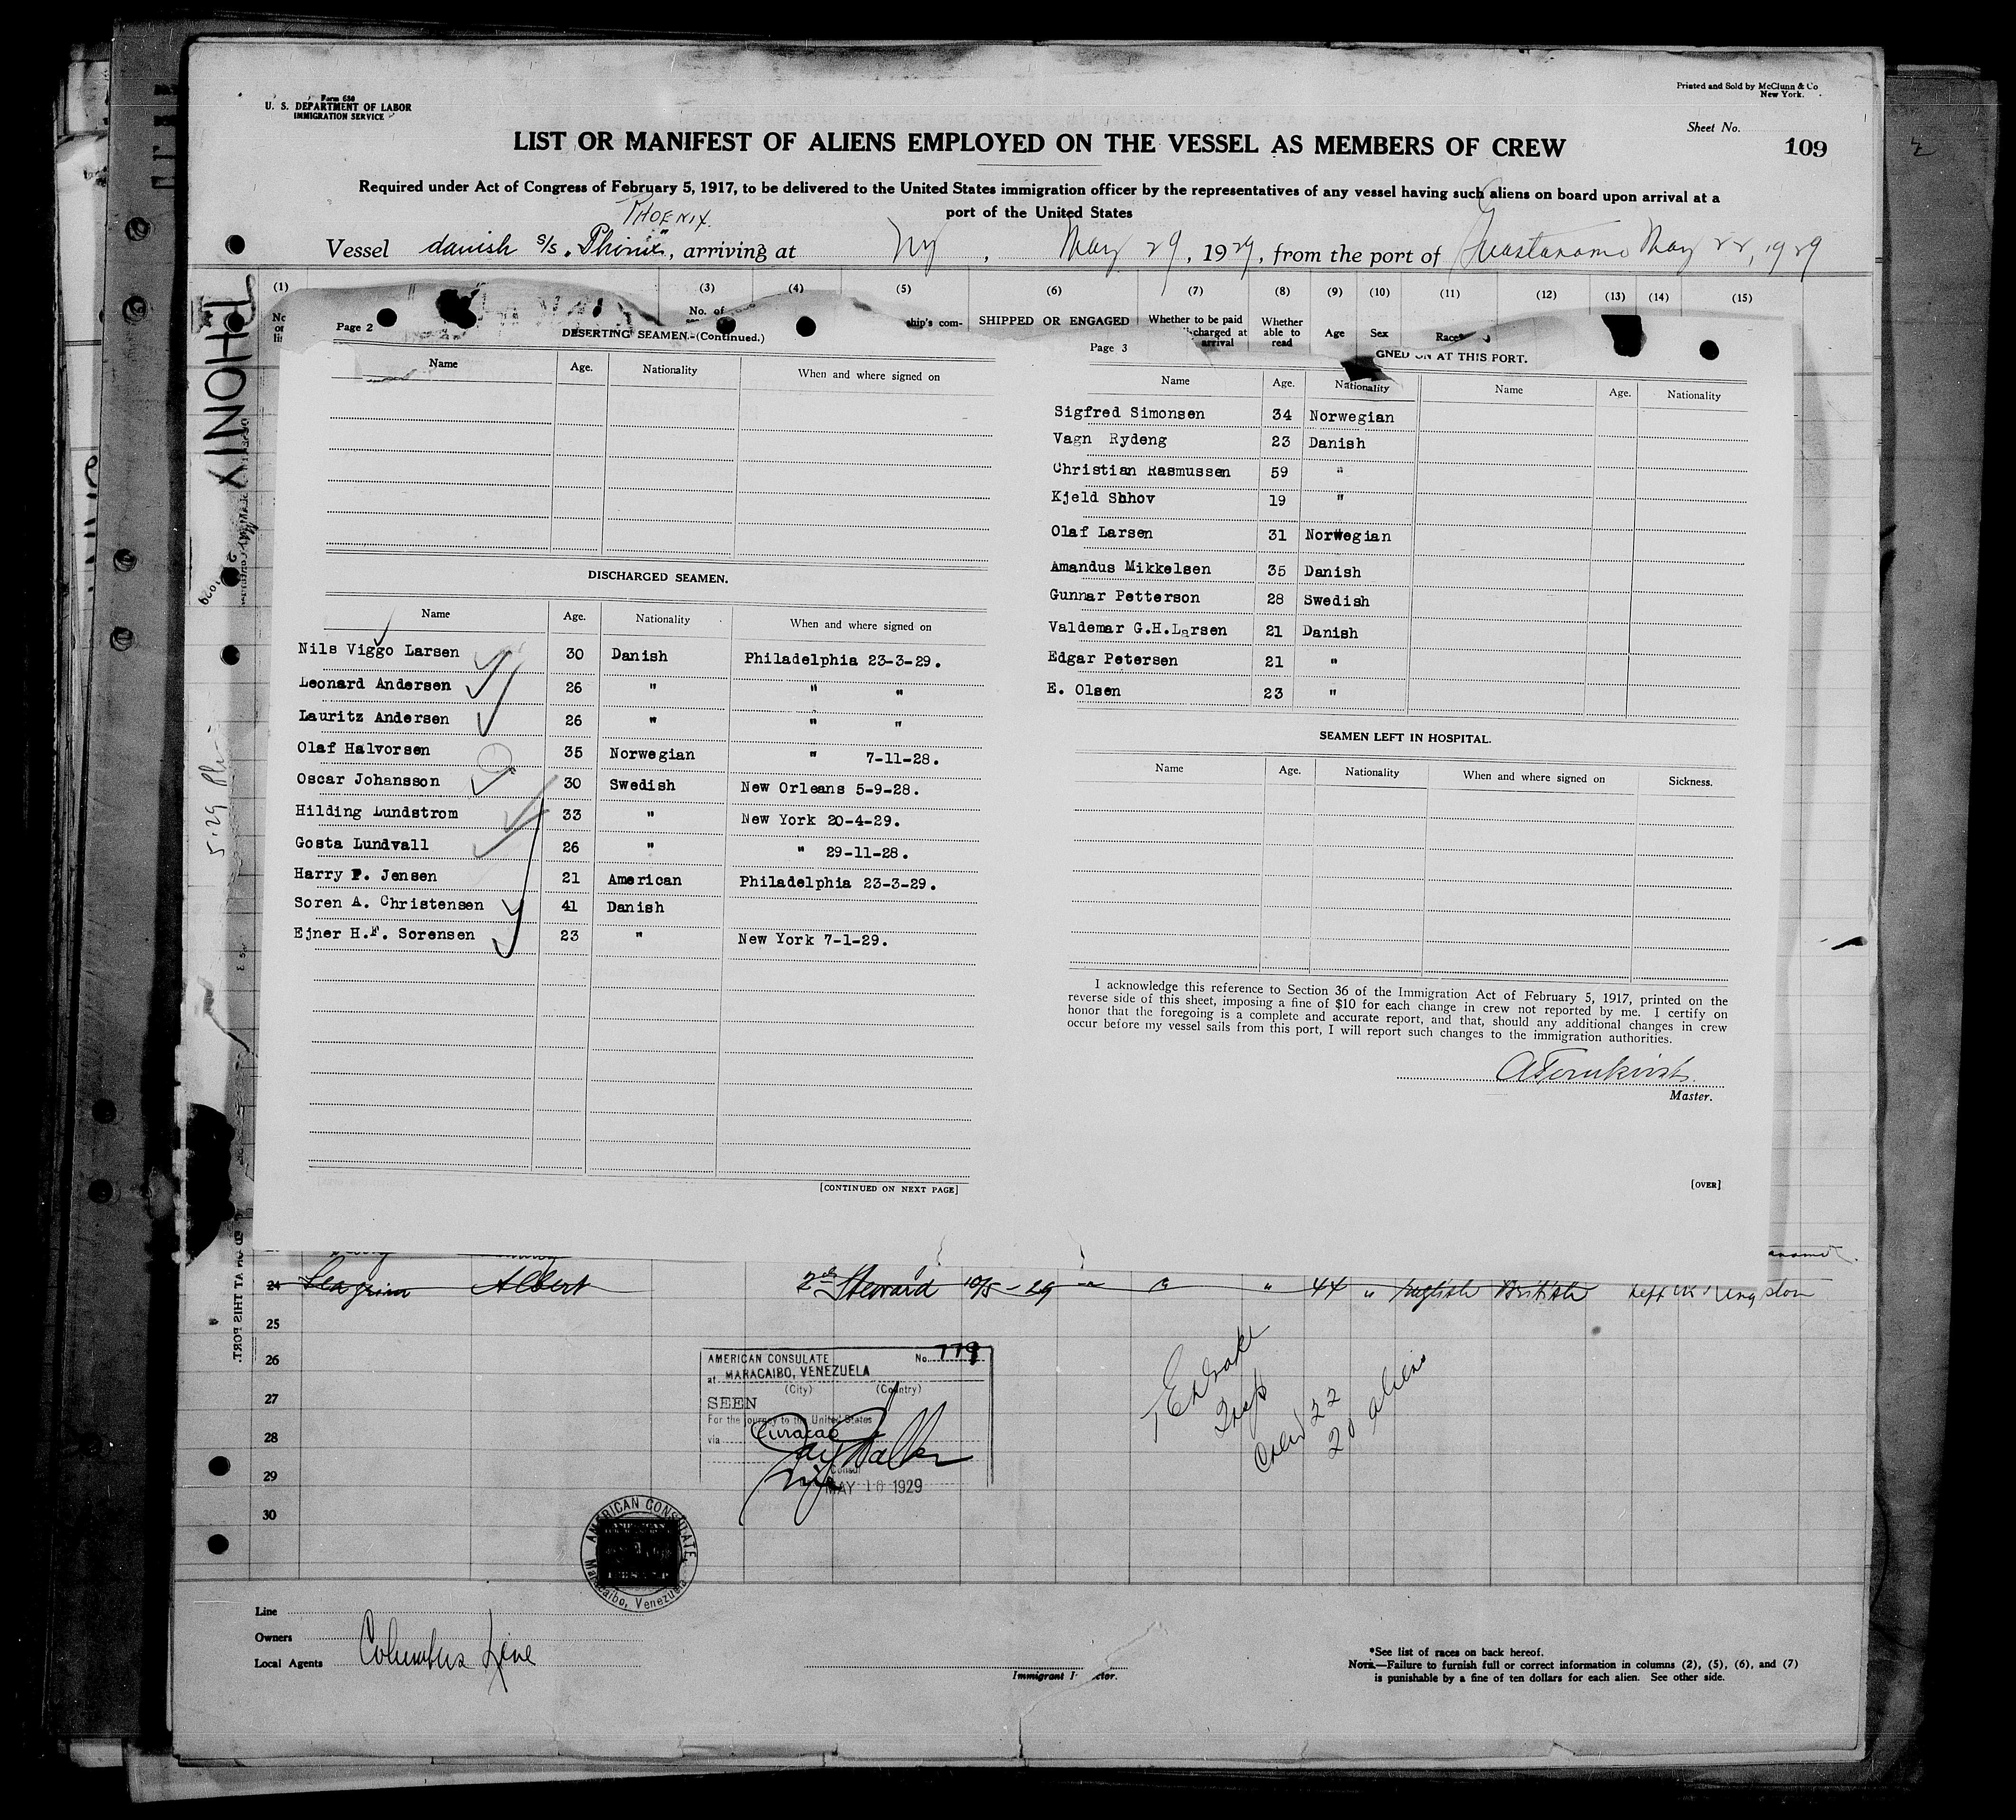 Form 680
U. S. DEPARTMENT OF LABOR
IMMIGRATION SERVICE
Printed and Sold by McClunn & Co
New York.
Sheet No.
109
LIST OR MANIFEST OF ALIENS EMPLOYED ON THE VESSEL AS MEMBERS OF CREW
Required under Act of Congress of February 5, 1917, to be delivered to the United States immigration officer by the representatives of any vessel having such aliens on board upon arrival at a
port of the United States
PHOENIX.
Vessel danish s/s. "Phönix", arriving at NY, May 29, 1929, from the port of May 22, 1929
(1) (3) (4) (5) (6) (7) (8) (9) (10) (11) (12) (13) (14) (15)
No. of ship's com- SHIPPED OR ENGAGED Whether to be paid Whether able to read Age Sex Race
charged at arrival
PHONIX
Page 2
DESERTING SEAMEN.-(Continued.)
Name Age. Nationality When and where signed on
DISCHARGED SEAMEN.
Name Age. Nationality When and where signed on
Nils Viggo Larsen 30 Danish Philadelphia 23-3-29.
Leonard Andersen 26 " " "
Lauritz Andersen 26 " " "
Olaf Halvorsen 35 Norwegian " 7-11-28.
Oscar Johansson 30 Swedish New Orleans 5-9-28.
Hilding Lundstrom 33 " New York 20-4-29.
Gosta Lundvall 26 " " 29-11-28.
Harry P. Jensen 21 American Philadelphia 23-3-29.
Soren A. Christensen 41 Danish
Ejner H.F. Sorensen 23 " New York 7-1-29.
[CONTINUED ON NEXT PAGE]
Page 3
GNED ON AT THIS PORT.
Name Age. Nationality Name Age. Nationality
Sigfred Simonsen 34 Norwegian
Vagn Rydeng 23 Danish
Christian Rasmussen 59 "
Kjeld Shhov 19 "
Olaf Larsen 31 Norwegian
Amandus Mikkelsen 35 Danish
Gunnar Petterson 28 Swedish
Valdemar G.H.Larsen 21 Danish
Edgar Petersen 21 "
E. Olsen 23 "
SEAMEN LEFT IN HOSPITAL.
Name Age. Nationality When and where signed on Sickness.
I acknowledge this reference to Section 36 of the Immigration Act of February 5, 1917, printed on the
reverse side of this sheet, imposing a fine of $10 for each change in crew not reported by me. I certify on
honor that the foregoing is a complete and accurate report, and that, should any additional changes in crew
occur before my vessel sails from this port, I will report such changes to the immigration authorities.
Master.
[OVER]
24 Seagrim Albert 2nd Steward 10/5-29 " " " 44 " English British Left at Kingston
25
26
27
28
29
30
AMERICAN CONSULATE No. 779
at MARACAIBO, VENEZUELA
(City) (Country)
SEEN
For the journey to the United States
via Curacao
Consul
MAY 10 1929
AMERICAN CONSULATE
Maracaibo, Venezuela
Insp
Crew 22
20 aliens
Line
Owners
Local Agents Columbus Line
Immigrant I ctor.
*See list of races on back hereof.
NOTE.—Failure to furnish full or correct information in columns (2), (5), (6), and (7)
is punishable by a fine of ten dollars for each alien. See other side.